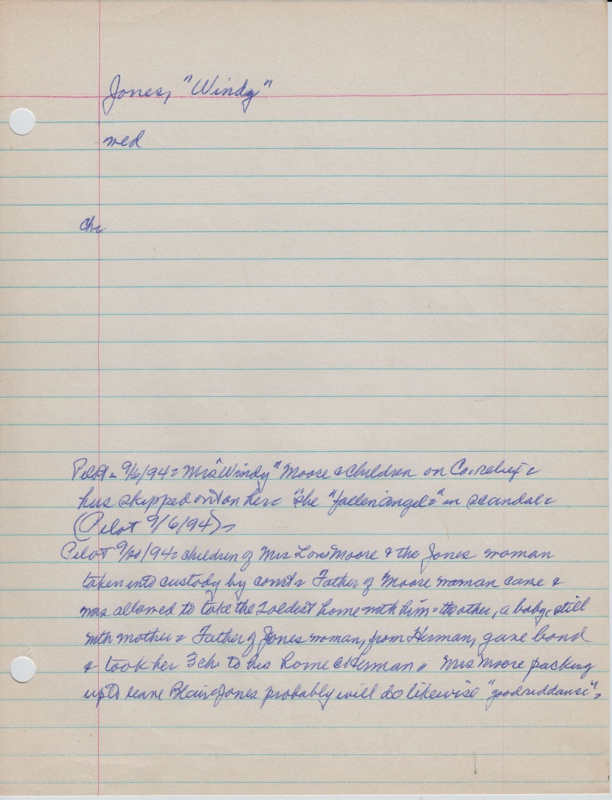 Jones, "Windy"
med
ch-
Pilot - 9/6/94 = Mrs "Windy" Moose & children on Co. relief &
hus skipped out on her = She "fallen angel" in scandal =
(Pilot 9/6/94) -
Pilot 9/20/94 = children of Mrs Moore & the Jones woman
taken into custody by court = Father of Moore woman came &
was allowed to take the 2 oldest home with him = other, a baby, still
with mother = Father of Jones woman, from Herman, gave bond
& took her 3 ch to his home @ Herman = Mrs Moore packing
up to leave Blair = Jones probably will do likewise "good riddance" =